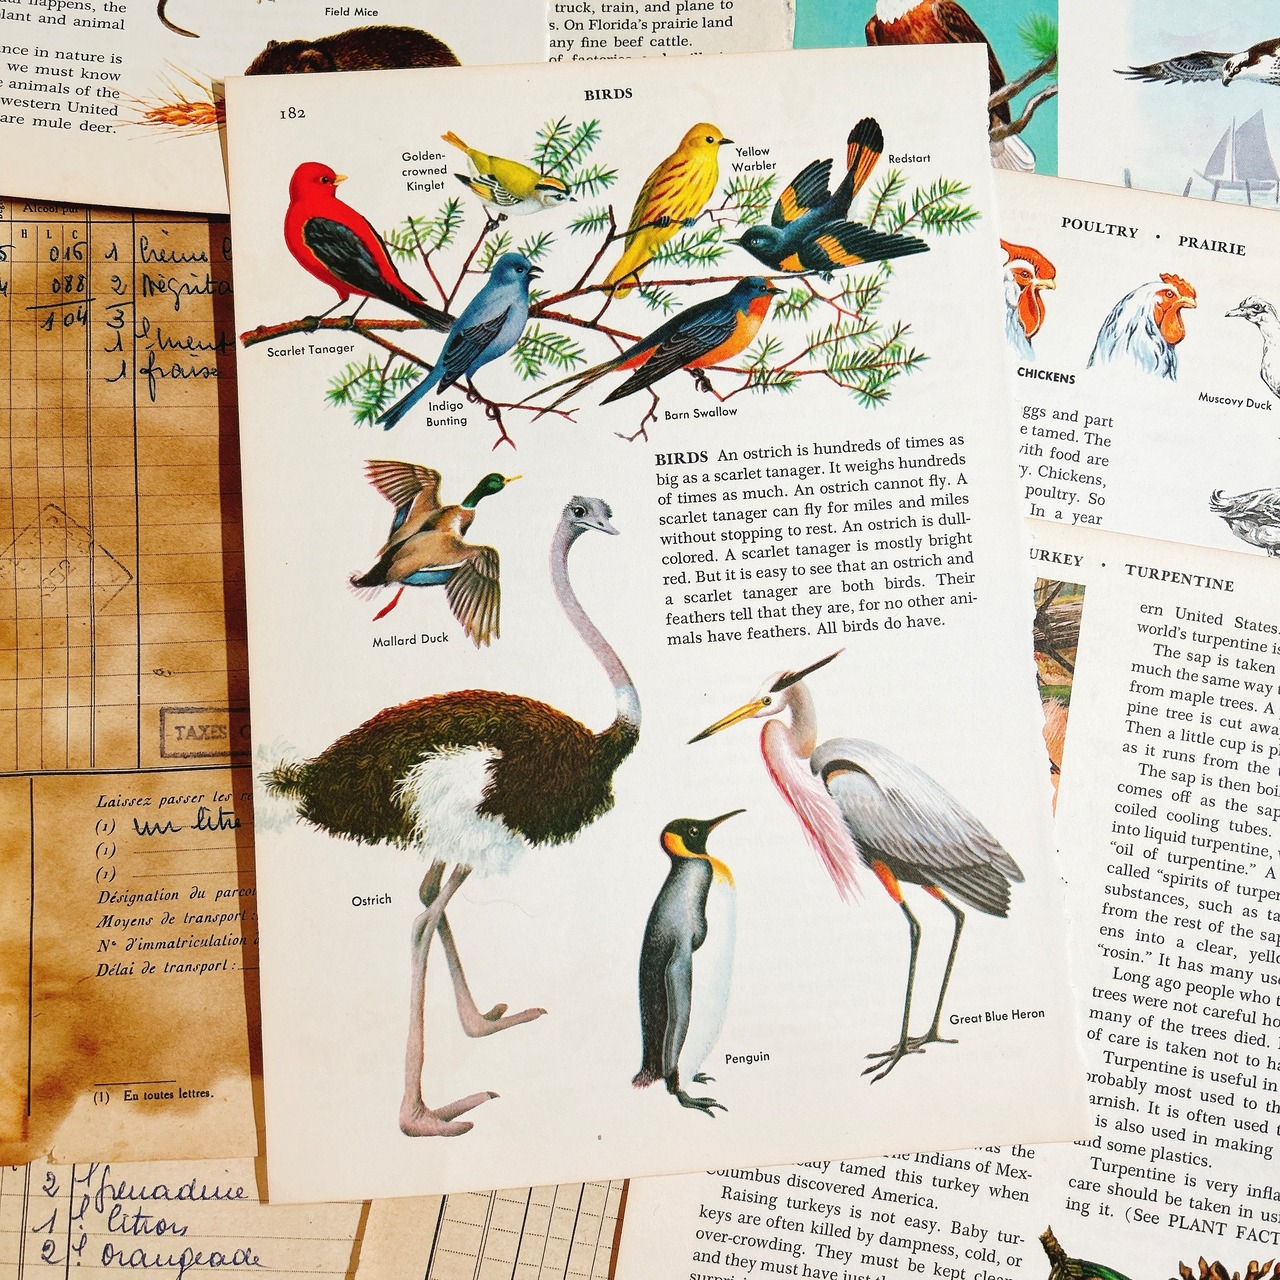 happens, the
plant and animal
nce in nature is
we must know
animals of the
western United
are mule deer.
Field Mice
truck, train, and plane to
s. On Florida's prairie land
any fine beef cattle.
182
BIRDS
Golden-
crowned
Kinglet
Yellow
Warbler
Redstart
Scarlet Tanager
Indigo
Bunting
Barn Swallow
BIRDS An ostrich is hundreds of times as
big as a scarlet tanager. It weighs hundreds
of times as much. An ostrich cannot fly. A
scarlet tanager can fly for miles and miles
without stopping to rest. An ostrich is dull-
colored. A scarlet tanager is mostly bright
red. But it is easy to see that an ostrich and
a scarlet tanager are both birds. Their
feathers tell that they are, for no other ani-
mals have feathers. All birds do have.
Mallard Duck
Ostrich
Penguin
Great Blue Heron
POULTRY · PRAIRIE
CHICKENS
Muscovy Duck
ggs and part
e tamed. The
with food are
y. Chickens,
poultry. So
In a year
URKEY · TURPENTINE
ern United States.
world's turpentine is
The sap is taken
much the same way
from maple trees. A
pine tree is cut away
Then a little cup is
as it runs from the
The sap is then
comes off as the sap
coiled cooling tubes.
into liquid turpentine,
"oil of turpentine." A
called "spirits of
substances, such as
from the rest of the sap
ens into a clear,
"rosin." It has many
Long ago people who
trees were not careful
many of the trees died.
of care is taken not to
Turpentine is useful in
probably most used to
arnish. It is often used
is also used in making
and some plastics.
Turpentine is very
care should be taken in
ing it. (See PLANT
was the
The Indians of Mex-
tamed this turkey when
Columbus discovered America.
Raising turkeys is not easy. Baby tur-
keys are often killed by dampness, cold, or
over-crowding. They must be kept
and they must have just
Alcool pur
H L C
016 1
088 2
104 3
1
1 fraise
TAXES
Laissez passer les
(1) un litre
(1)
(1)
Désignation du
Moyens de transport :
N° d'immatriculation
Délai de transport :
(1) En toutes lettres.
2 grenadine
1 citron
2 orangeade